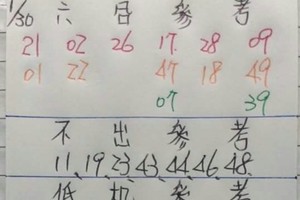 1/30 六合參考
21 02 26 17 28 09
01 22 47 18 49
07 39
不出參考
11、19、23、43、44、46、48
低机參考